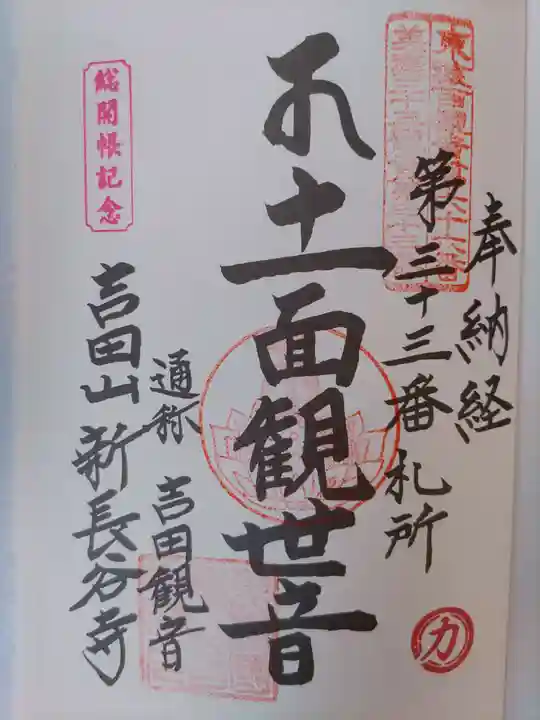 奉納経
第三十三番札所
十一面観世音
通称 吉田観音
吉田山 新長谷寺
総開帳記念
カ